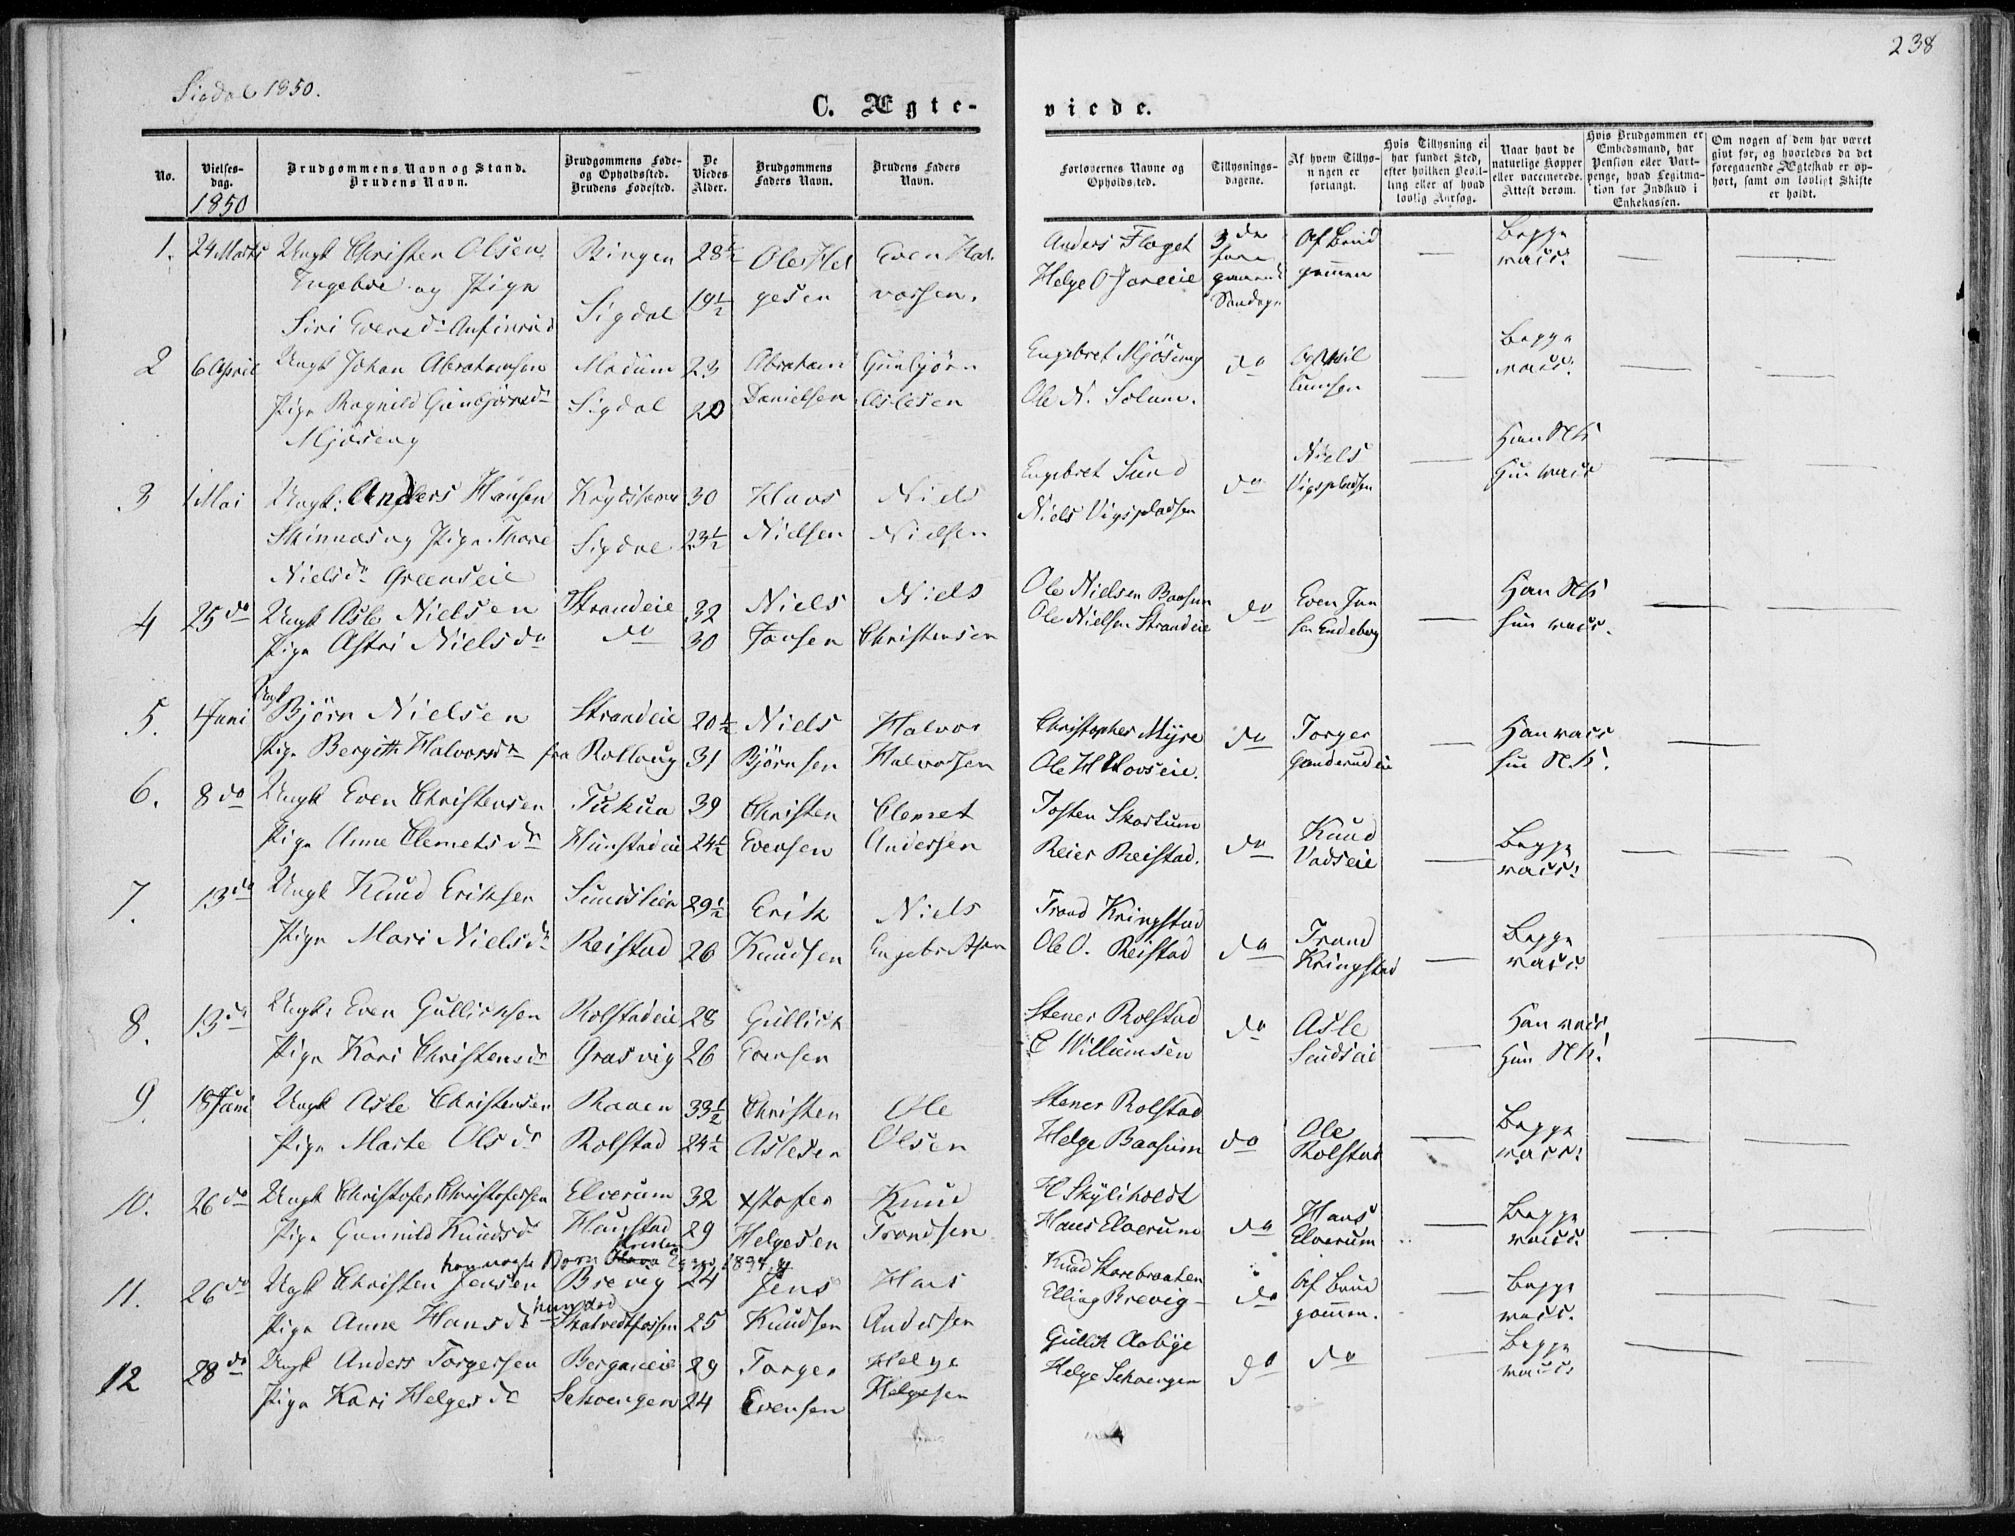 238
Sigdal 1850.
C. Ægteviede.
No.
Vielsesdag.
Brudgommens Navn og Stand.
Brudens Navn.
Brudgommens Føde- og Opholdssted.
Brudens Fødested.
De Viedes Alder.
Brudgommens Faders Navn.
Brudens Faders Navn.
Forlovernes Navne og Opholdssted.
Tillysningsdagene.
Af hvem Tillysningen er forlangt.
Hvis Tillysning ei har fundet Sted, efter hvilken Bevilling eller af hvad lovlig Aarsag.
Naar havt de naturlige Kopper eller vaccinerede. Attest derom.
Hvis Brudgommen er Embedsmand, har Pension eller Vartpenge, hvad Legitimation for Indskud i Enkekassen.
Om nogen af dem har været gift før, og hvorledes da det foregaaende Ægteskab er ophørt, samt om lovligt Skifte er holdt.
1850
1. 24 Marts Ungk Christen Olsen Ringen 28½ Ole Hel Even Hal Anders Flaget 3de Af Brud Begge
og Pige Sigdal 19½ gesen vorsen. Helge O gaaende gommen vacc:
Siri Eversdr Anfinrud Søndage
2 6 April Ungk Johan Abrahamsen Modum 23 Abraham Gunbjørn Engebret Mjøseng do Begge
Pige Ragnild Gunbjørnsdr Sigdal 20 Danielsen Aslesen Ole N. Solum. vacc:
Mjøseng
3 1 Mai Ungk: Anders Hansen 30 Niels Engebret Lund do Niels Han N.K
og Pige Thore Sigdal 23½ Nielsen Nielsen Niels Vigspladsen Vigspladsen Hun vacc
Nielsdr Greenseie
4 25 do Ungk Asle Nielsen Strandeie 32 Niels Niels Ole Nielsen Baasum do Even Han N.K
Pige Astri Nielsdr do 30 Christensen Ole Nielsen Strandeie hun vacc.
5. 4 Juni Ungk Bjørn Nielsen Strandeie 20½ Niels Halvor Christopher Myre do Torger Han vacc
Pige Bergith Halvorsdr fra Rollaug 31 Bjørnsen Halvorsen Ole H Hovseie. Ganderudeie hun N.K.
6. 8 do Ungk Even Christensen 39 Christen Clemet Josten Skartum do Knud Begge
Pige Anne Clemetsdr 24½ Evensen Andersen Reier Reistad. Vadseie vacc:
7. 13 do Ungk Knud Eriksen 29½ Erik Niels Trond Kringstad do Trond Begge
Pige Mari Nielsdr Reistad 26 Knudsen Engebretsen Ole O. Reistad Kringstad vacc
8. 13 do Ungk: Even Gullicksen Rolstadeie 28 Gullick Stener Rolstad do Asle Han vacc
Pige Kari Christensdr Grasvig 26 Evensen C Willumsen Hun N.K!
9. 18 Juni Ungk Asle Christensen Raaen 33½ Christen Ole Stener Rolstad do Ole Begge
Pige Marte Olsdr Rolstad 24½ Aslesen Olsen Helge Baasum Rolstad vacc:
10. 26 do Ungk Christofer Christofersen Elverum 32 Xstofer Knud H Skyliholdt do Hans Begge
Pige Gunnild Knudsdr Haustad 29 Helgesen Trondsen Hans Elverum Elverum vacc.
11. 26 do Ungk Christen Jensen Brevig 24 Jens Hans Knud Storebraaten do Af Brud Begge
Pige Anne Hansdr hun død 25 Knudsen Andersen Elling Brevig gommen. vacc.
12 28 do Ungk Anders Torgersen 29 Torger Helge Gullik Aabye do do Begge
Pige Kari Helgesdr 24 Evensen Helgesen Helge vacc